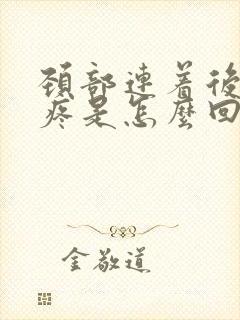 颈部連着後
疼是怎麽回
金敬道